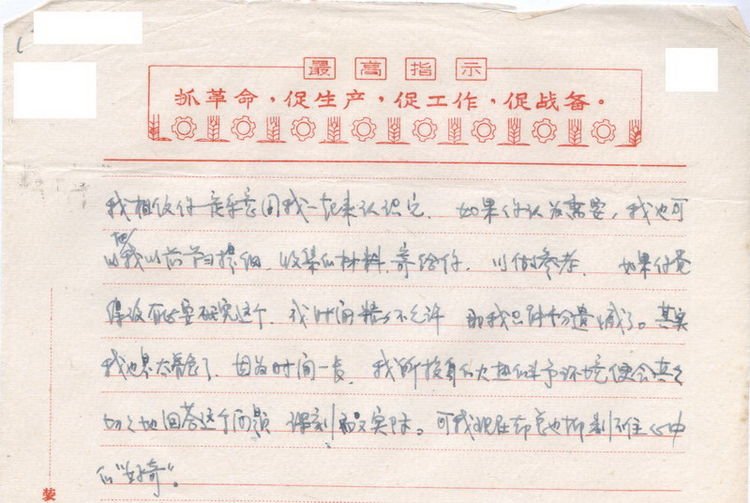 最高指示
抓革命，促生产，促工作，促战备。
我相信你是乐意同我一起来认识它. 如果你认为需要, 我也可
把
以我以前节日提细, 收集的材料, 寄给你, 以做参考. 如果你觉
得没有必要研究这个, 或时间精力不允许 那我只能十分遗憾了。其实
我也是太着急了, 因为时间一长, 我所投身的火热斗争环境便会真真
切切地回答这个问题 深刻而又实际。可我现在却怎也抑制不住心中
的"好奇"。
装